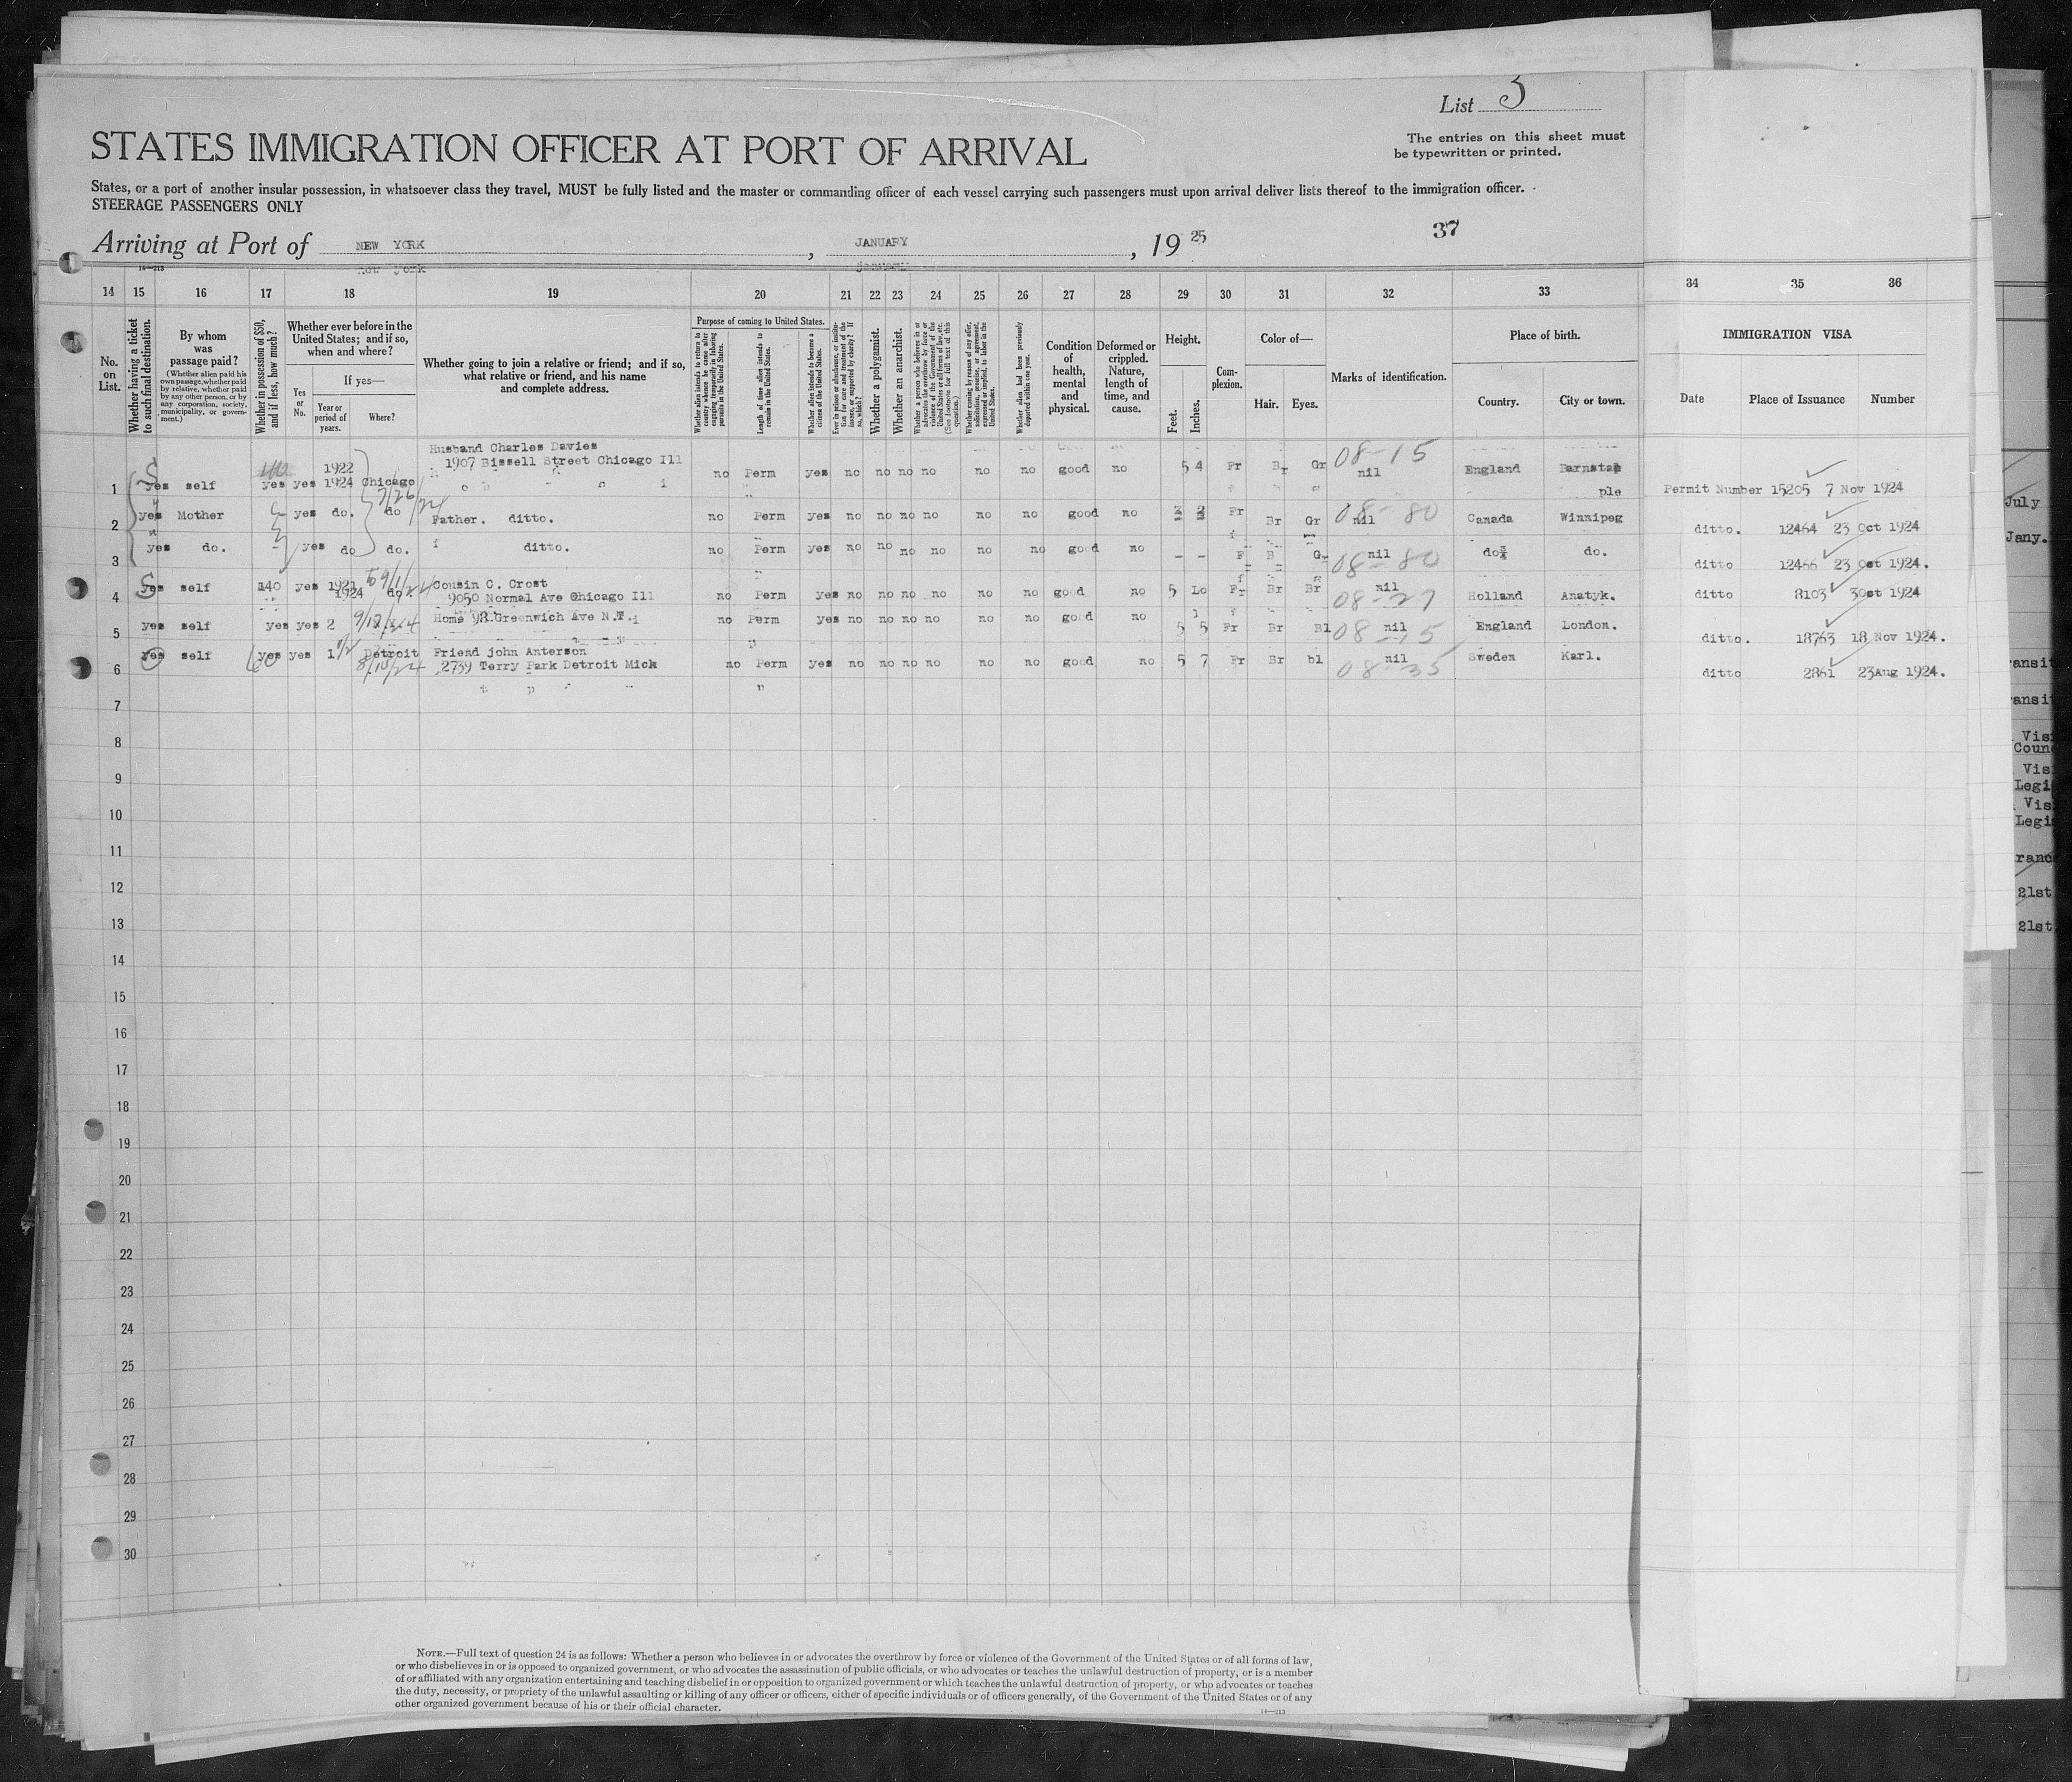 List 3
The entries on this sheet must
be typewritten or printed.
STATES IMMIGRATION OFFICER AT PORT OF ARRIVAL
States, or a port of another insular possession, in whatsoever class they travel, MUST be fully listed and the master or commanding officer of each vessel carrying such passengers must upon arrival deliver lists thereof to the immigration officer.
STEERAGE PASSENGERS ONLY
37
Arriving at Port of NEW YORK, JANUARY, 19 25
14—213
14 15 16 17 18 19 20 21 22 23 24 25 26 27 28 29 30 31 32 33 34 35 36
No. on List.
Whether having a ticket to such final destination.
By whom was passage paid?
(Whether alien paid his own passage, whether paid by relative, whether paid by any other person, or by any corporation, society, municipality, or government.)
Whether in possession of $50, and if less, how much?
Whether ever before in the United States; and if so, when and where?
Yes or No.
If yes—
Year or period of years.
Where?
Whether going to join a relative or friend; and if so, what relative or friend, and his name and complete address.
Purpose of coming to United States.
Whether alien intends to return to country whence he came after engaging temporarily in laboring pursuits in the United States.
Length of time alien intends to remain in the United States.
Whether alien intends to become a citizen of the United States.
Ever in prison or almshouse, or institution for care and treatment of the insane, or supported by charity? If so, which?
Whether a polygamist.
Whether an anarchist.
Whether a person who believes in or advocates the overthrow by force or violence of the Government of the United States or all forms of law, etc. (See footnote for full text of this question.)
Whether coming by reason of any offer, solicitation, promise, or agreement, expressed or implied, to labor in the United States.
Whether alien had been previously deported within one year.
Condition of health, mental and physical.
Deformed or crippled. Nature, length of time, and cause.
Height.
Feet. Inches.
Complexion.
Color of—
Hair. Eyes.
Marks of identification.
Place of birth.
Country. City or town.
IMMIGRATION VISA
Date Place of Issuance Number
Husband Charles Davies
1907 Bissell Street Chicago Ill
1 yes self yes yes 1922 1924 Chicago no Perm yes no no no no no no good no 5 4 Fr Br Gr 08-15 nil England Barnstap ple Permit Number 15205 7 Nov 1924
2 yes Mother yes do. do 7/26/24 Father. ditto. no Perm yes no no no no no no good no Fr Br Gr 08-80 nil Canada Winnipeg ditto. 12464 23 Oct 1924
3 yes do. - yes do do. ditto. no Perm yes no no no no no no good no - - F B G 08-80 nil do do. ditto 12466 23 Oct 1924.
Cousin C. Crost
4 yes self 140 yes 1921 1924 do 9050 Normal Ave Chicago Ill no Perm yes no no no no no no good no 5 Lo Fr Br Br 08-27 nil Holland Anatyk. ditto 8103 30ct 1924
5 yes self yes yes 2 9/13/24 Home 98 Greenwich Ave N.Y. no Perm yes no no no no no no good no 5 5 Fr Br Bl 08-15 nil England London. ditto. 18763 18 Nov 1924.
Friend john Anterson
6 yes self yes 60 yes 1 1/2 Detroit 8/10/24 2739 Terry Park Detroit Mick no Perm yes no no no no no no good no 5 7 Fr Br bl 08-35 nil Sweden Karl. ditto 2861 23Aug 1924.
7
8
9
10
11
12
13
14
15
16
17
18
19
20
21
22
23
24
25
26
27
28
29
30
July
Jany.
21st
21st
NOTE.—Full text of question 24 is as follows: Whether a person who believes in or advocates the overthrow by force or violence of the Government of the United States or of all forms of law,
or who disbelieves in or is opposed to organized government, or who advocates the assassination of public officials, or who advocates or teaches the unlawful destruction of property, or is a member
of or affiliated with any organization entertaining and teaching disbelief in or opposition to organized government or which teaches the unlawful destruction of property, or who advocates or teaches
the duty, necessity, or propriety of the unlawful assaulting or killing of any officer or officers, either of specific individuals or of officers generally, of the Government of the United States or of any
other organized government because of his or their official character.
14—213